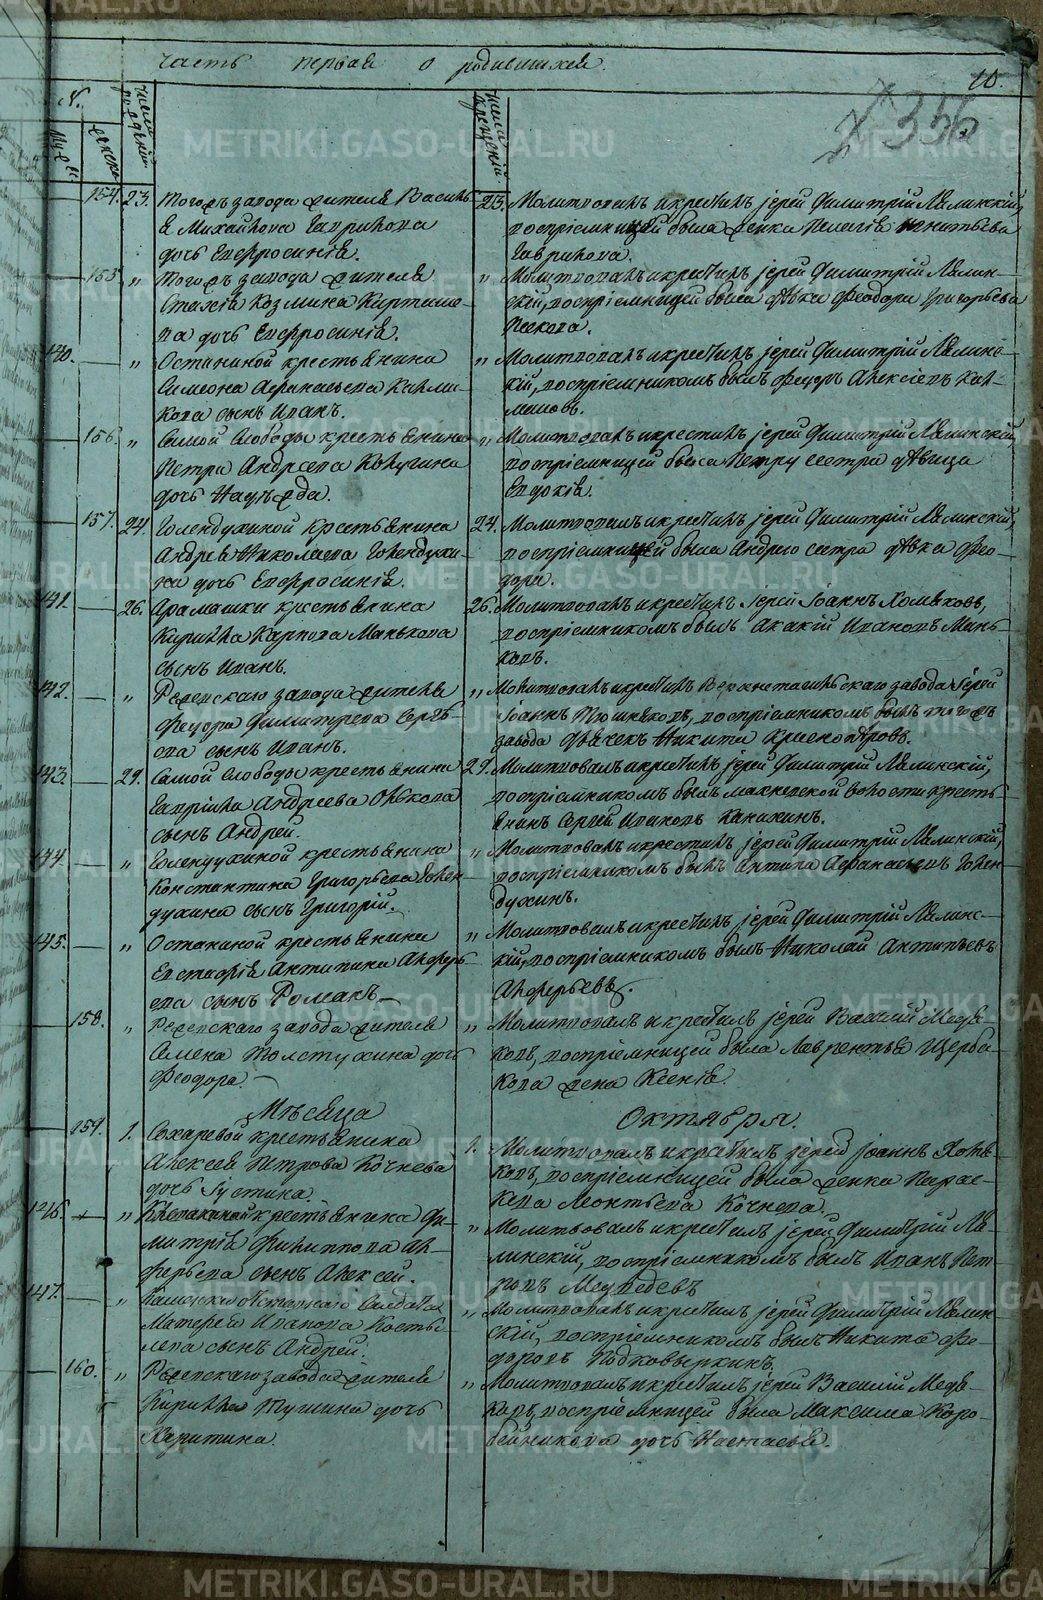 Часть первая о родившихся.
10.
356
N.
Муж.
Женска
Число рождений.
Число крещений.
154. 23. Тогожъ завода жителя Василь
я Михайлова Гаврилова
дочь Евфросинія.
23. Молитвовалъ и крестилъ іерей Димитрій Лялинскій,
воспріемницей была женка Пелагія Игнатьева
Гаврилова.
155. „ Тогожъ завода жителя
Козмина
ва дочь Евфросинія.
„ Молитвовалъ и крестилъ іерей Димитрій Лялин-
скій, воспріемницей была дѣвка Феодора Григорьева
Пескова.
140. „ Останиной крестьянина
Симеона Афанасьева Калма-
кова сынъ Иванъ.
„ Молитвовалъ и крестилъ іерей Димитрій Лялинс-
кій, воспріемникомъ былъ Федоръ Алексіевъ Кал-
маковъ.
156. „ Самой Слободы крестьянина
Петра Андреева Кочугина
дочь Надежда.
„ Молитвовалъ и крестилъ іерей Димитрій Лялинскій,
воспріемницей была Петру сестра дѣвица
Евдокія.
157. 24. Голендухиной крестьянина
Андрея Николаева Голендухи-
на дочь Евфросинія.
24. Молитвовалъ и крестилъ іерей Димитрій Лялинскій,
воспріемницей была Андрею сестра дѣвка Фео-
дора.
141. 26. Арамашки крестьянина
Кирилла Карпова Манькова
сынъ Иванъ.
26. Молитвовалъ и крестилъ іерей Іоаннъ Хомяковъ,
воспріемникомъ былъ Акакій Ивановъ Мань-
ковъ.
142. „ Режевскаго завода жителя
Федора Димитрева Серге-
ева сынъ Иванъ.
„ Молитвовалъ и крестилъ Верхнетагильскаго завода іерей
Іоаннъ воспріемникомъ былъ тогожъ
завода дьячекъ Никита Краснопѣровъ.
143. 29. Самой Слободы крестьянина
Гавріила Андреева Олькова
сынъ Андрей.
29. Молитвовалъ и крестилъ іерей Димитрій Лялинскій,
воспріемникомъ былъ Махневской волости кресть-
янинъ Сергей Ивановъ
144. „ Голендухиной крестьянина
Константина Григорьева Голен-
духина сынъ Григорій.
„ Молитвовалъ и крестилъ іерей Димитрій Лялинскій,
воспріемникомъ былъ Антипа Афанасьевъ Голен-
духинъ.
145. „ Останиной крестьянина
Евстафія Антипина Алферь-
ева сынъ Романъ.
„ Молитвовалъ и крестилъ іерей Димитрій Лялинс-
кій, воспріемникомъ былъ Николай Антипьевъ
Алферьевъ.
158. „ Режевскаго завода жителя
Семена Толстухина дочь
Феодора.
„ Молитвовалъ и крестилъ іерей Василій Медв-
ковъ, воспріемницей была Лаврентья Щерба-
кова жена Ксенія.
Мѣсяца Октября.
159. 1. Сохаревой крестьянина
Алексея Петрова Кочнева
дочь Іустина.
1. Молитвовалъ и крестилъ іерей Іоаннъ Хомя-
ковъ, воспріемницей была женка Парас-
кева Леонтьева Кочнева.
146. „ крестьянина Ди-
митрія Филиппова Ал-
ферьева сынъ Алексей.
„ Молитвовалъ и крестилъ іерей Димитрій Ля-
линскій, воспріемникомъ былъ Иванъ Пет-
ровъ Медведевъ
147. „ отставнаго Солдата
Матвея Иванова Косты-
лева сынъ Андрей.
„ Молитвовалъ и крестилъ іерей Димитрій Лялин-
скій, воспріемникомъ былъ Никита Фе-
доровъ Подковыркинъ.
160. „ Режевскаго завода жителя
Кирилла Тушина дочь
Харитина.
„ Молитвовалъ и крестилъ іерей Василій Медв-
ковъ, воспріемницей была Максима Коро-
бейникова дочь Настасья.
METRIKI.GASO-URAL.RU